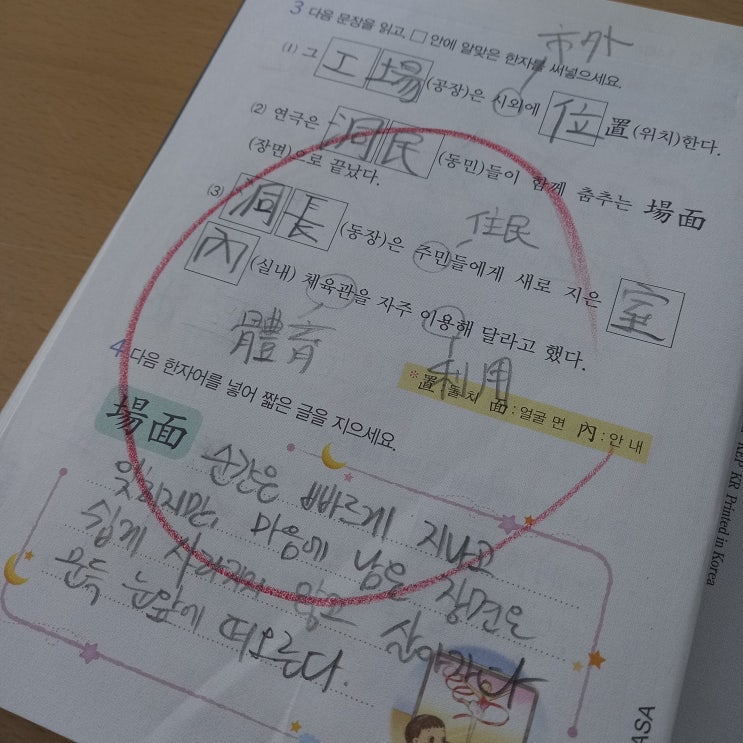 3 다음 문장을 읽고, □ 안에 알맞은 한자를 써넣으세요.
市外
(1) 그 工場(공장)은 시외에 位置(위치)한다.
(2) 연극은 洞民(동민)들이 함께 춤추는 場面
(장면)으로 끝났다.
住民
(3) 洞長(동장)은 주민들에게 새로 지은 室
內(실내) 체육관을 자주 이용해 달라고 했다.
體育 利用
*置:둘 치 面:얼굴 면 內:안 내
4 다음 한자어를 넣어 짧은 글을 지으세요.
場面
순간은 빠르게 지나고
잊히지만, 마음에 남은 장면은
쉽게 사라지지 않고 살아가다
문득 눈앞에 떠오른다.
KEP KR Printed in Korea
ASA